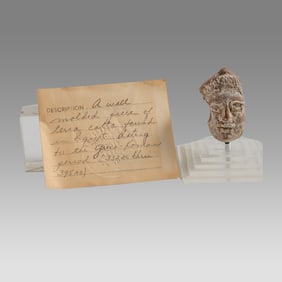 DESCRIPTION A well
molded piece of
terra cotta found
in Egypt dating
to the Greco-Roman
period (332 BC thru
395 AD)